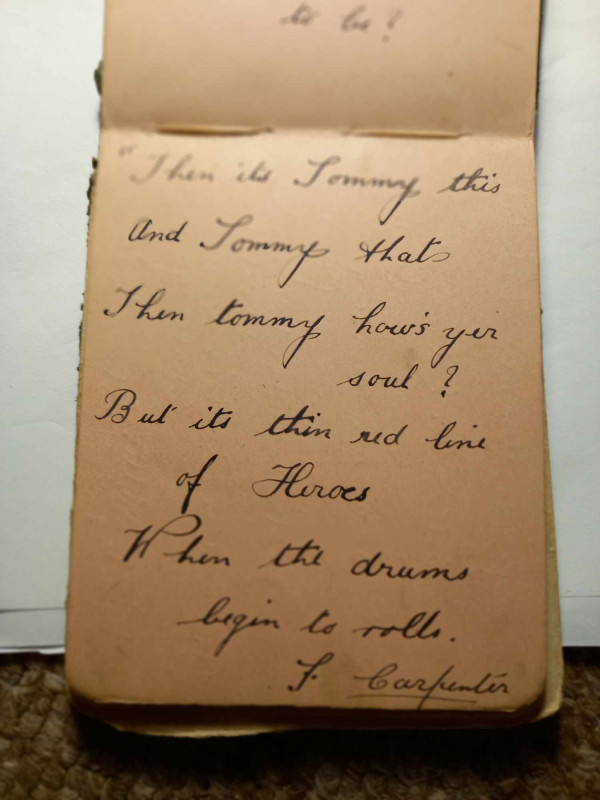 to be?
"Then its Tommy this
And Tommy that
Then tommy how's yer
soul ?
But its thin red line
of Heroes
When the drums
begin to rolls.
F. Carpenter